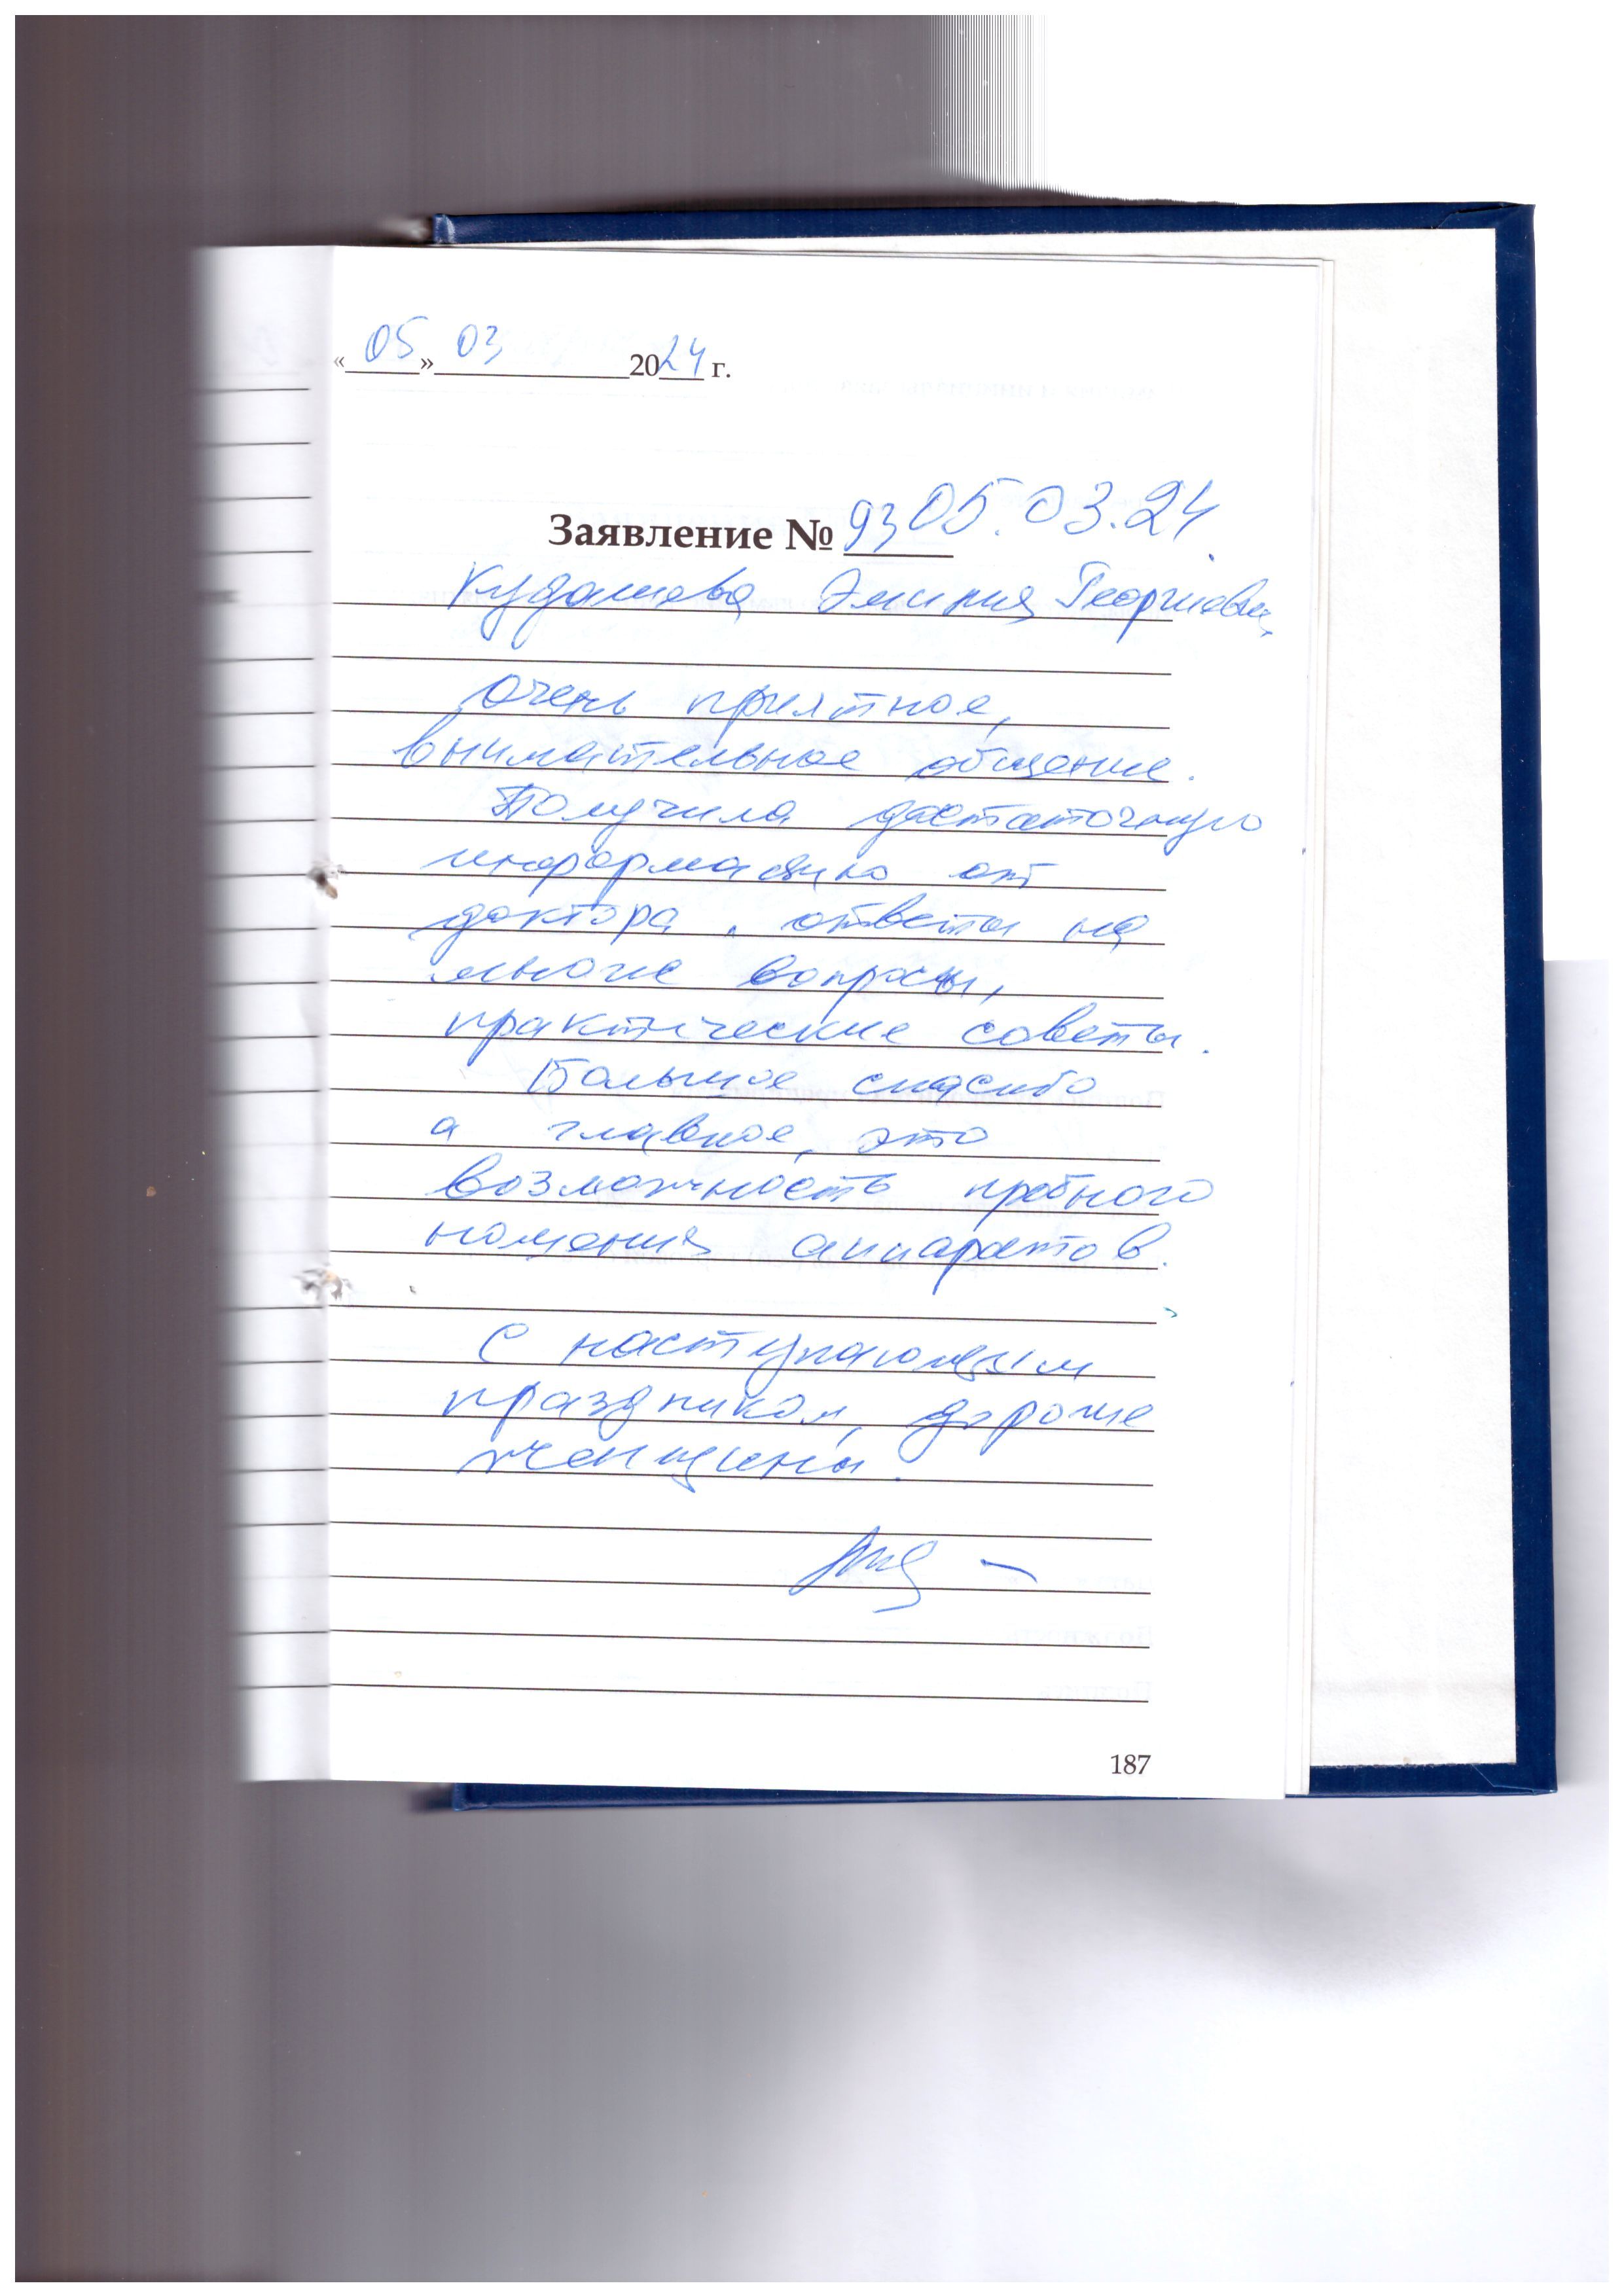 «05» 03 2024 г.
Заявление № 93 05.03.24.
Кудашева Эмилия Георгиевна
Очень приятное,
внимательное общение.
Получила достаточную
информацию от
доктора, ответы на
многие вопросы,
практические советы.
Большое спасибо
а главное, это
возможность пробного
ношения аппаратов.
С наступающим
праздником, дорогие
женщины.
187